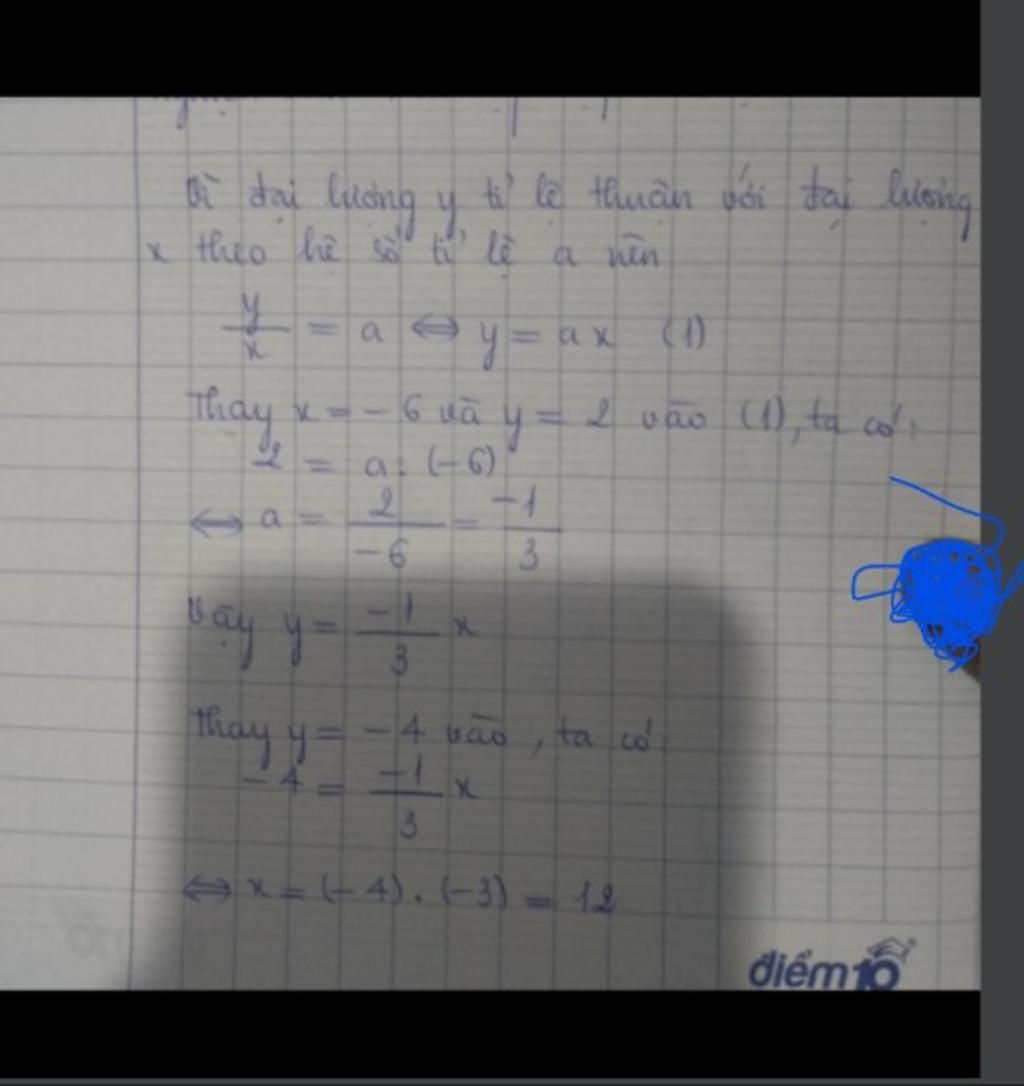 Vì đại lượng y tỉ lệ thuận với đại lượng
x theo hệ số tỉ lệ a nên
y/x = a ⇔ y = ax (1)
Thay x = -6 và y = 2 vào (1), ta có:
2 = a. (-6)
⇔ a = 2/-6 = -1/3
Vậy y = -1/3 x
Thay y = -4 vào, ta có
-4 = -1/3 x
⇔ x = (-4). (-3) = 12
điểm10